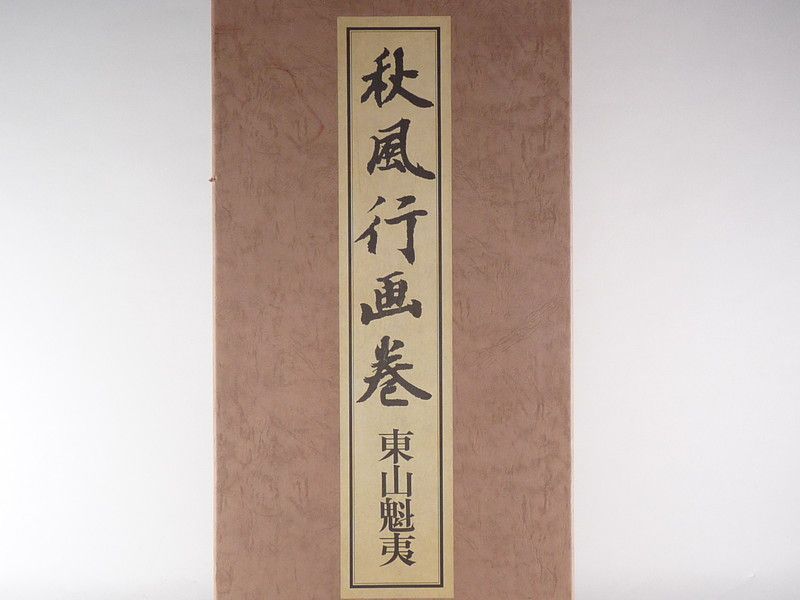 秋風行画巻
東山魁夷